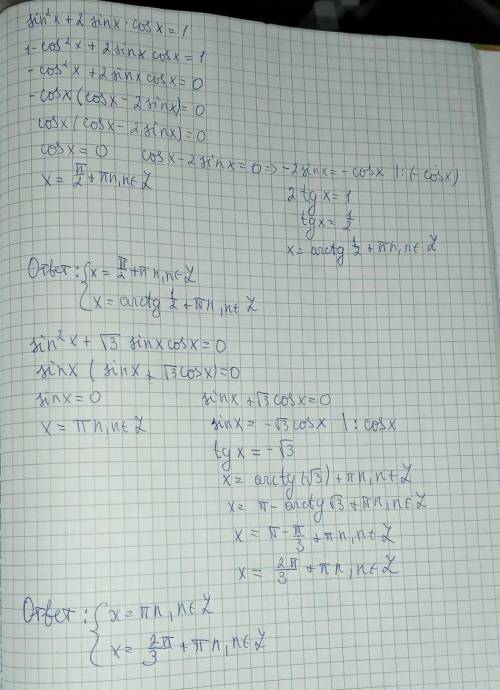 sin²x + 2 sinx · cosx = 1
1 - cos²x + 2 sinx cosx = 1
- cos²x + 2 sinx cosx = 0
- cosx (cosx - 2 sinx) = 0
cosx (cosx - 2 sinx) = 0
cosx = 0    cosx - 2 sinx = 0 => -2 sinx = - cosx | : (- cosx)
x = π/2 + πn, n ∈ Z    2 tg x = 1
tg x = 1/2
x = arctg 1/2 + πn, n ∈ Z
Ответ: { x = π/2 + πn, n ∈ Z
x = arctg 1/2 + πn, n ∈ Z
sin²x + √3 sinx cosx = 0
sinx (sinx + √3 cosx) = 0
sinx = 0    sinx + √3 cosx = 0
x = πn, n ∈ Z    sinx = -√3 cosx | : cosx
tg x = -√3
x = arctg (-√3) + πn, n ∈ Z
x = π - arctg √3 + πn, n ∈ Z
x = π - π/3 + πn, n ∈ Z
x = 2π/3 + πn, n ∈ Z
Ответ: { x = πn, n ∈ Z
x = 2π/3 + πn, n ∈ Z